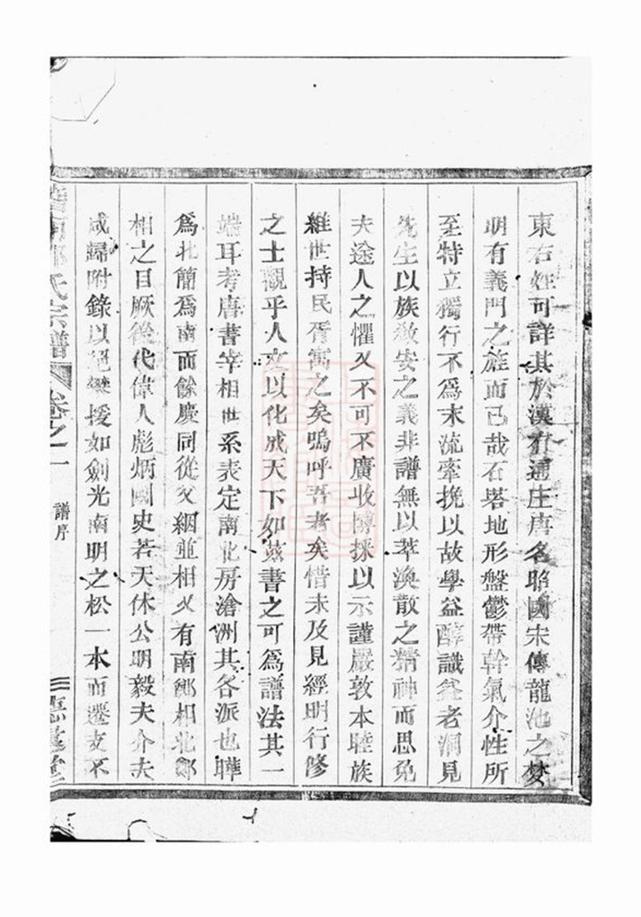 東右姓可詳其於漢有通庄唐名昭國宋傳龍池之樊
明有義門之旌而已哉石塔地形盤鬱帶幹氣介性所
至特立獨行不爲末流牽挽以故學益醇識益老洞見
先生以族敘安之義非譜無以萃渙散之精神而思免
夫途人之懼又不可不廣收博採以示謹嚴敦本睦族
維世持民胥寓之矣嗚呼吾耆矣惜未及見經明行修
之士觀乎人文以化成天下如茲書之可爲譜法其一
端耳考唐書宰相世系表定南北房滄洲其各派也瞱
爲北簡爲南而餘慶同從父絪並相又有南鄭相北鄭
相之目厥後代偉人彪炳國史若天休公明毅夫介夫
咸歸附錄以絕攀援如劍光南明之松一本而遷支不
氏宗譜
卷之一
譜序
三